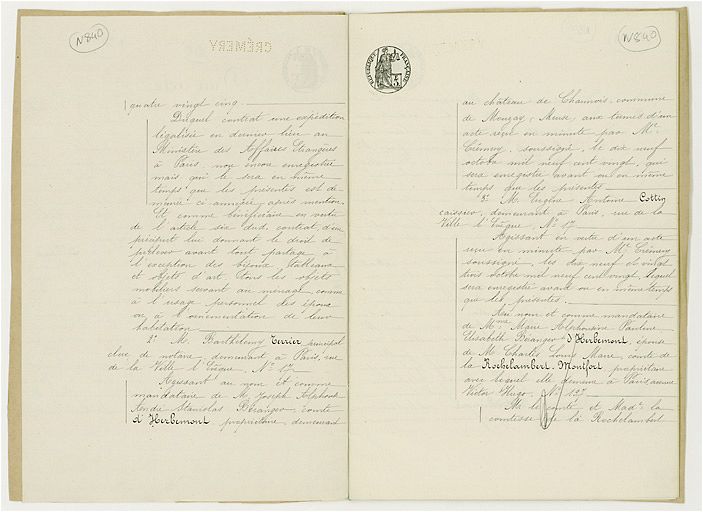 N840
CRÉMERY
quatre vingt cinq.
Duquel contrat une expédition
légalisée en dernier lieu au
Ministère des Affaires Etrangères
à Paris, non encore enregistré
mais qui le sera en même
temps que les présentes est de-
meurée ci annexée, après mention.
Et comme bénéficiaire en vertu
de l'article six dud. contrat d'un
préciput lui donnant le droit de
prélever avant tout partage à
l'exception des bijoux, tableaux
et objets d'art tous les objets
mobiliers servant au ménage comme
à l'usage personnel des époux
ou à l'ornementation de leur
habitation
2° M. Barthélemy Terrier principal
clerc de notaire, demeurant à Paris, rue
de la Ville l'Evêque, No 17.
Agissant au nom et comme
mandataire de M. Joseph Alphonse
Stanislas Béranger, comte
d'Herbemont, propriétaire, demeurant
N840
REPUBLIQUE FRANÇAISE
au château de Charmois, commune
de Mouzay, Meuse, aux termes d'un
acte reçu en minute par Me
Crémery, soussigné, le dix neuf
octobre mil neuf cent vingt, qui
sera enregistré avant ou en même
temps que les présentes
3° M. Eugène Antoine Cottin
caissier, demeurant à Paris, rue de la
Ville l'Evêque, No 17.
Agissant en vertu d'un acte
reçu en minute par Me Crémery
soussigné, les dix neuf et vingt
trois octobre mil neuf cent vingt, lequel
sera enregistré avant ou en même temps
que les présentes.
Au nom et comme mandataire
de Mme Marie Alphonsine Pauline
Elisabeth Béranger d'Herbemont, épouse
de M. Charles Louis Marie, comte de
la Rochelambert-Montfort, propriétaire
avec lequel elle demeure à Paris avenue
Victor Hugo, No 127.
M. le comte et Made la
comtesse de la Rochelambert